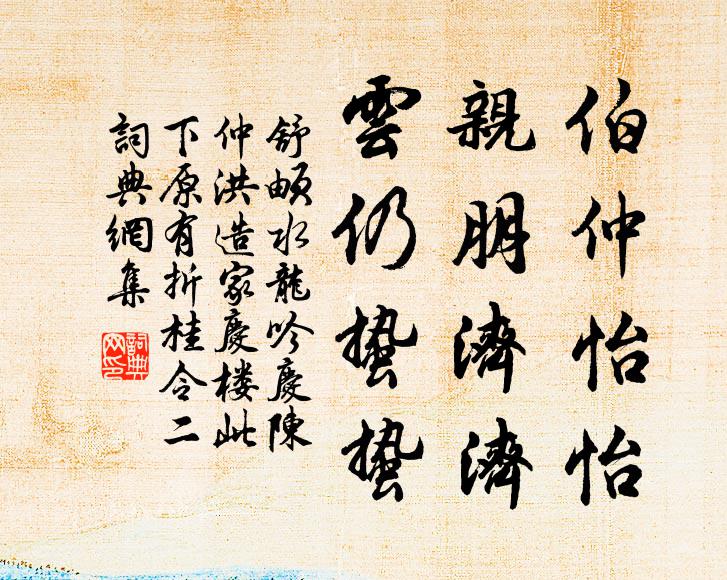 伯仲怡怡
親朋濟濟
雲仍蟄蟄
舒頔水龍吟慶陳
仲洪造家慶楼此
下原有折桂令二
詞典網集
詞典網印